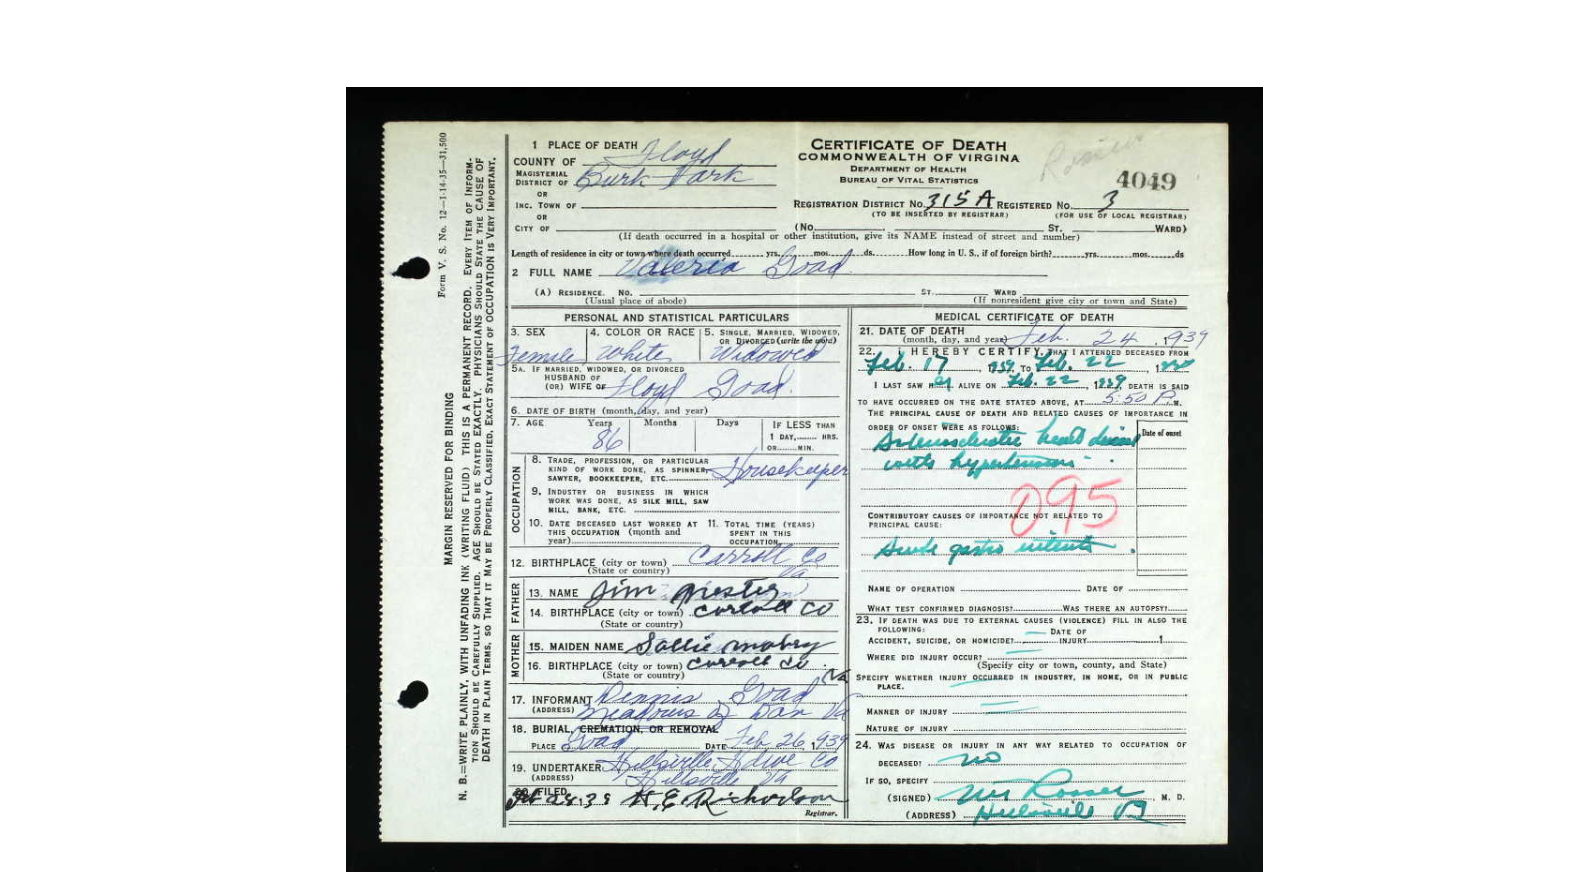 1 PLACE OF DEATH
COUNTY OF Floyd
MAGISTERIAL
DISTRICT OF Burk Park
OR
INC. TOWN OF
OR
CITY OF
CERTIFICATE OF DEATH
COMMONWEALTH OF VIRGINA
DEPARTMENT OF HEALTH
BUREAU OF VITAL STATISTICS
4049
REGISTRATION DISTRICT NO. 315A REGISTERED NO. 3
(TO BE INSERTED BY REGISTRAR) (FOR USE OF LOCAL REGISTRAR)
(NO. ST. WARD)
(If death occurred in a hospital or other institution, give its NAME instead of street and number)
Length of residence in city or town where death occurred yrs. mos. ds. How long in U. S., if of foreign birth? yrs. mos. ds
2 FULL NAME Valeria Goad
(A) RESIDENCE. NO. ST. WARD
(Usual place of abode) (If nonresident give city or town and State)
PERSONAL AND STATISTICAL PARTICULARS
3. SEX 4. COLOR OR RACE 5. SINGLE, MARRIED, WIDOWED,
OR DIVORCED (write the word)
Female White Widowed
5A. IF MARRIED, WIDOWED, OR DIVORCED
HUSBAND OF
(OR) WIFE OF Floyd Goad.
6. DATE OF BIRTH (month, day, and year)
7. AGE Years Months Days IF LESS THAN
86 1 DAY, HRS.
OR MIN.
OCCUPATION
8. TRADE, PROFESSION, OR PARTICULAR
KIND OF WORK DONE, AS SPINNER,
SAWYER, BOOKKEEPER, ETC. Housekeeper
9. INDUSTRY OR BUSINESS IN WHICH
WORK WAS DONE, AS SILK MILL, SAW
MILL, BANK, ETC.
10. DATE DECEASED LAST WORKED AT 11. TOTAL TIME (YEARS)
THIS OCCUPATION (month and SPENT IN THIS
year) OCCUPATION
12. BIRTHPLACE (city or town) Carroll Co
(State or country) Va
FATHER
13. NAME Jim
14. BIRTHPLACE (city or town) Carroll Co
(State or country)
MOTHER
15. MAIDEN NAME Sallie Mabry
16. BIRTHPLACE (city or town) Carroll Co
(State or country) Va
17. INFORMANT Dennis Goad
(ADDRESS) Meadows of Dan Va
18. BURIAL, CREMATION, OR REMOVAL
PLACE Goad DATE Feb 26, 1939
19. UNDERTAKER Hillsville Co
(ADDRESS) Hillsville Va
20. FILED Feb 28 39 Richardson
Registrar.
MEDICAL CERTIFICATE OF DEATH
21. DATE OF DEATH
(month, day, and year) Feb. 24, 1939
22. I HEREBY CERTIFY, THAT I ATTENDED DECEASED FROM
Feb. 17, 1939, TO Feb. 22, 1939
I LAST SAW HER ALIVE ON Feb. 22, 1939, DEATH IS SAID
TO HAVE OCCURRED ON THE DATE STATED ABOVE, AT 5:50 P.M.
THE PRINCIPAL CAUSE OF DEATH AND RELATED CAUSES OF IMPORTANCE IN
ORDER OF ONSET WERE AS FOLLOWS:
Date of onset
Arteriosclerotic heart disease
with hypertension.
095
CONTRIBUTORY CAUSES OF IMPORTANCE NOT RELATED TO
PRINCIPAL CAUSE:
Acute gastro
NAME OF OPERATION DATE OF
WHAT TEST CONFIRMED DIAGNOSIS? WAS THERE AN AUTOPSY?
23. IF DEATH WAS DUE TO EXTERNAL CAUSES (VIOLENCE) FILL IN ALSO THE
FOLLOWING:
DATE OF
ACCIDENT, SUICIDE, OR HOMICIDE? INJURY 1
WHERE DID INJURY OCCUR?
(Specify city or town, county, and State)
SPECIFY WHETHER INJURY OCCURRED IN INDUSTRY, IN HOME, OR IN PUBLIC
PLACE.
MANNER OF INJURY
NATURE OF INJURY
24. WAS DISEASE OR INJURY IN ANY WAY RELATED TO OCCUPATION OF
DECEASED? no
IF SO, SPECIFY
(SIGNED) M. D.
(ADDRESS) Hillsville Va
Form V. S. No. 12—1-14-35—31,500
MARGIN RESERVED FOR BINDING
N. B.—WRITE PLAINLY, WITH UNFADING INK (WRITING FLUID) THIS IS A PERMANENT RECORD. EVERY ITEM OF INFORM-
TION SHOULD BE CAREFULLY SUPPLIED. AGE SHOULD BE STATED EXACTLY. PHYSICIANS SHOULD STATE THE CAUSE OF
DEATH IN PLAIN TERMS, SO THAT IT MAY BE PROPERLY CLASSIFIED. EXACT STATEMENT OF OCCUPATION IS VERY IMPORTANT.